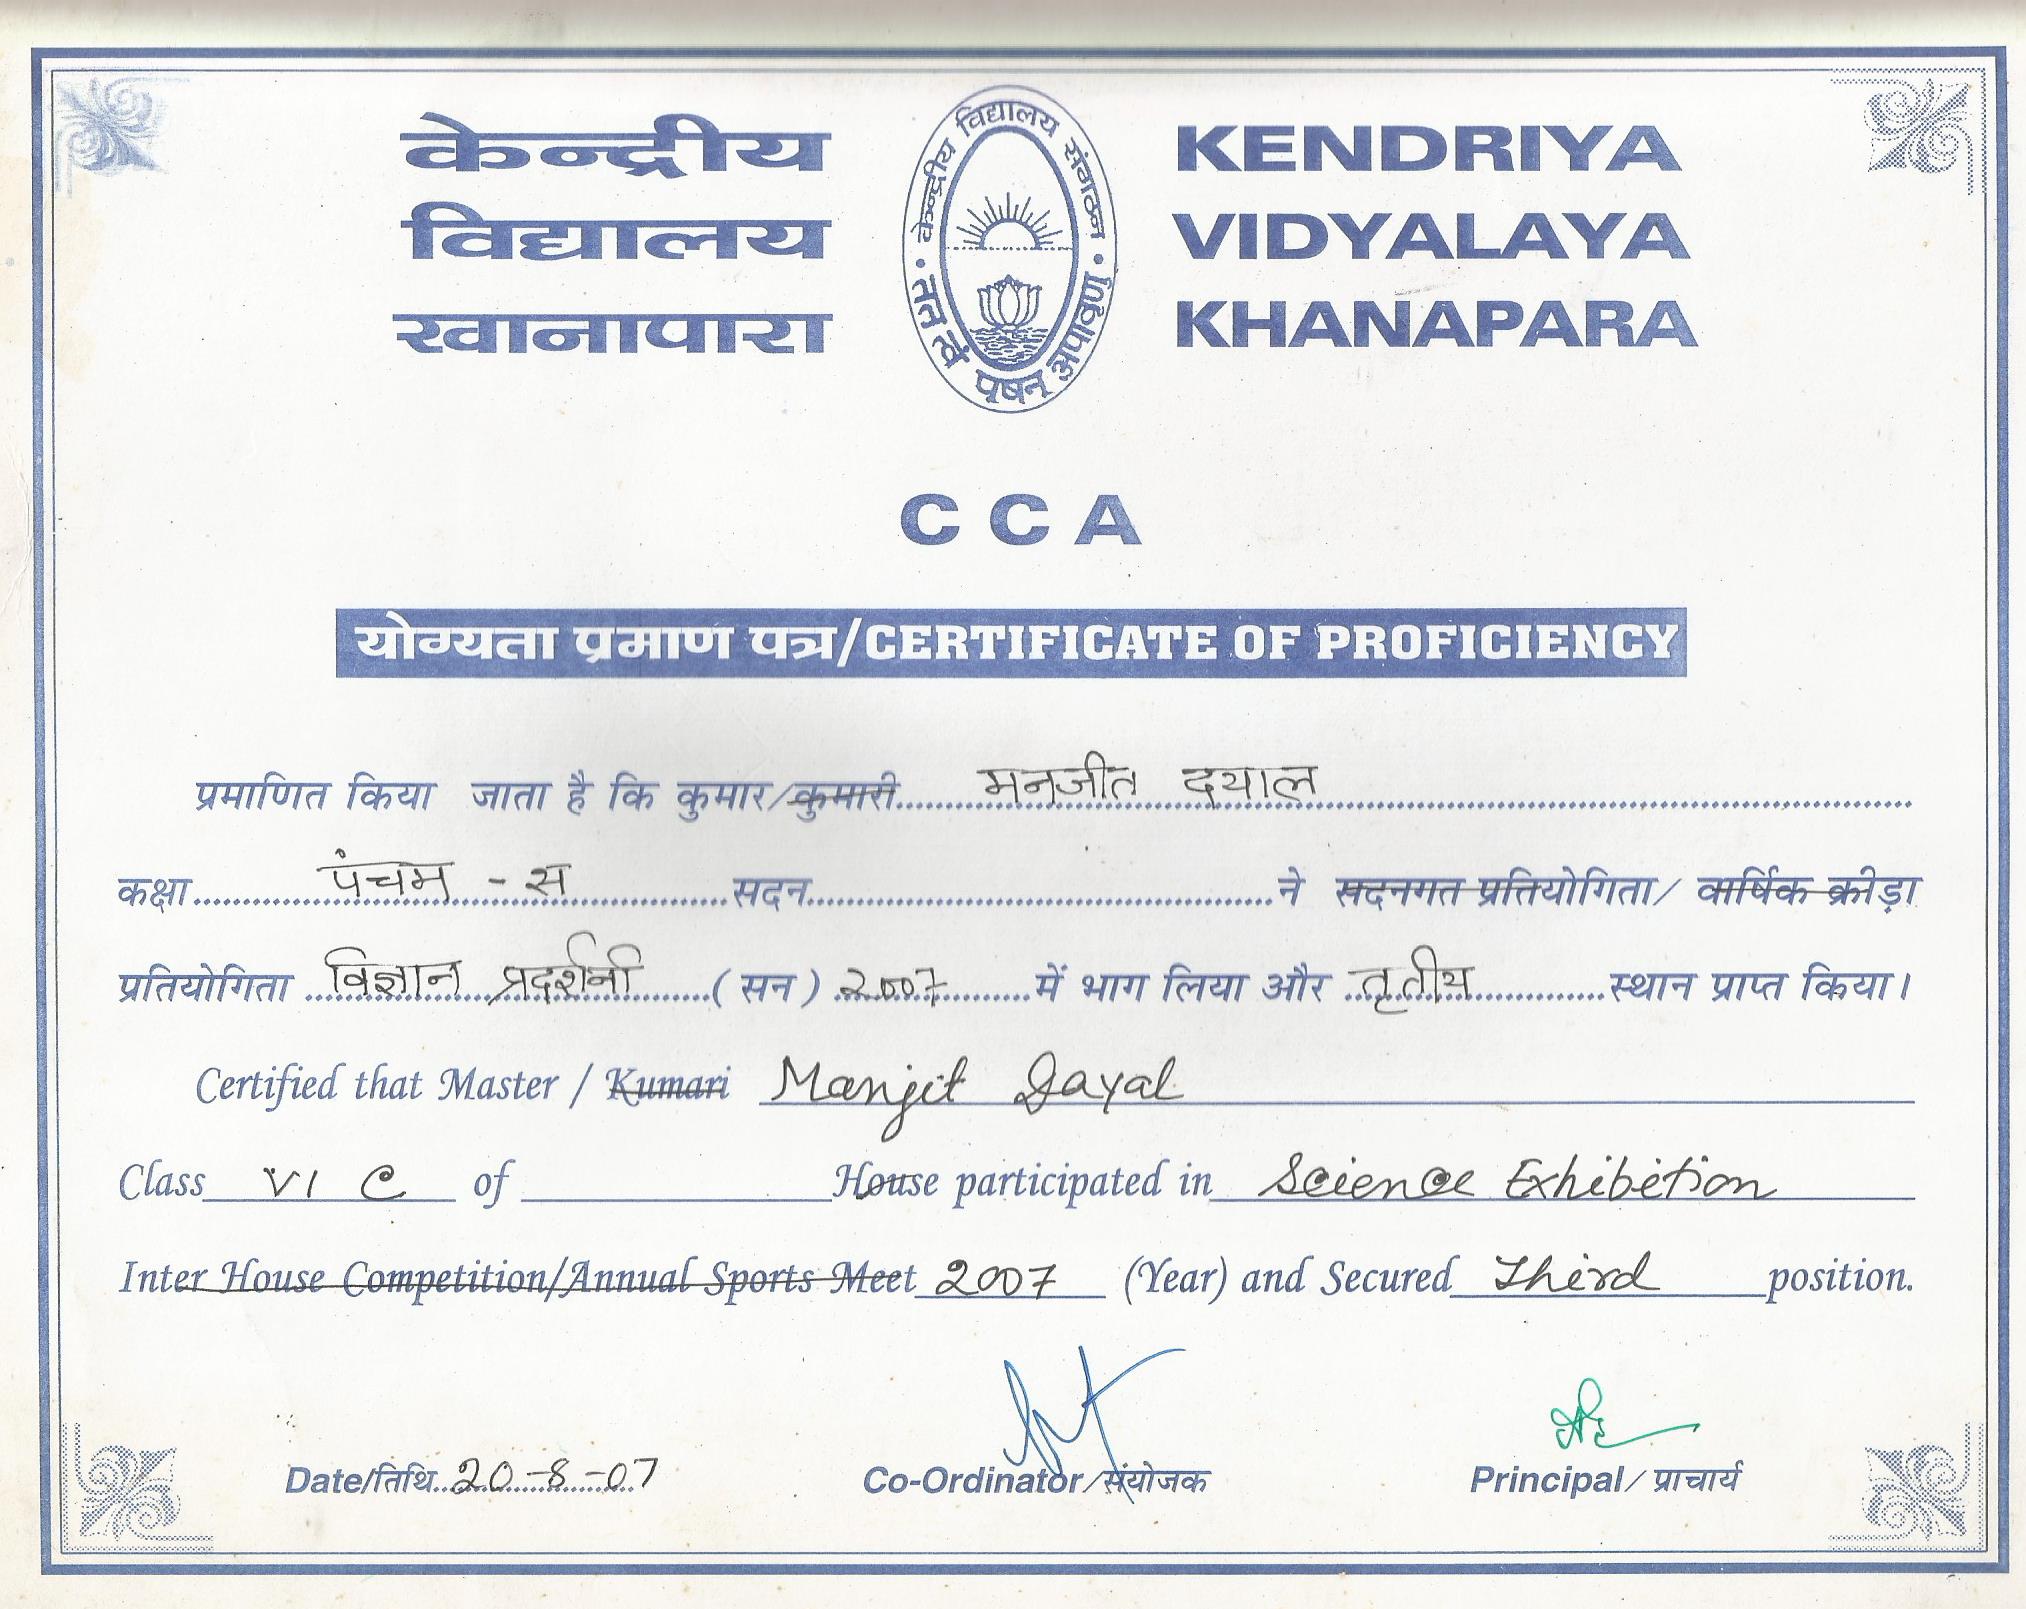 केन्द्रीय
विद्यालय
खानापारा
केन्द्रीय विद्यालय संगठन
तत् त्वं पूषन् अपावृणु
KENDRIYA
VIDYALAYA
KHANAPARA
CCA
योग्यता प्रमाण पत्र/CERTIFICATE OF PROFICIENCY
प्रमाणित किया जाता है कि कुमार/कुमारी मनजीत दयाल
कक्षा पंचम - स सदन ने सदनगत प्रतियोगिता/ वार्षिक क्रीड़ा
प्रतियोगिता विज्ञान प्रदर्शनी (सन) 2007 में भाग लिया और तृतीय स्थान प्राप्त किया।
Certified that Master / Kumari Manjit Dayal
Class VI C of House participated in Science Exhibition
Inter House Competition/Annual Sports Meet 2007 (Year) and Secured Third position.
Date/तिथि 20-8-07
Co-Ordinator/संयोजक
Principal/प्राचार्य